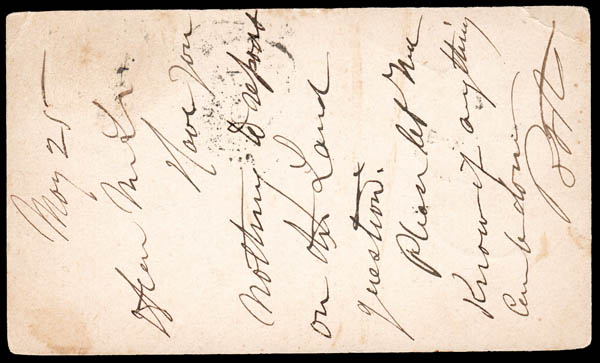 May 25
Have you
nothing to report
on the Land
question.
Please let me
Know if anything
can be done